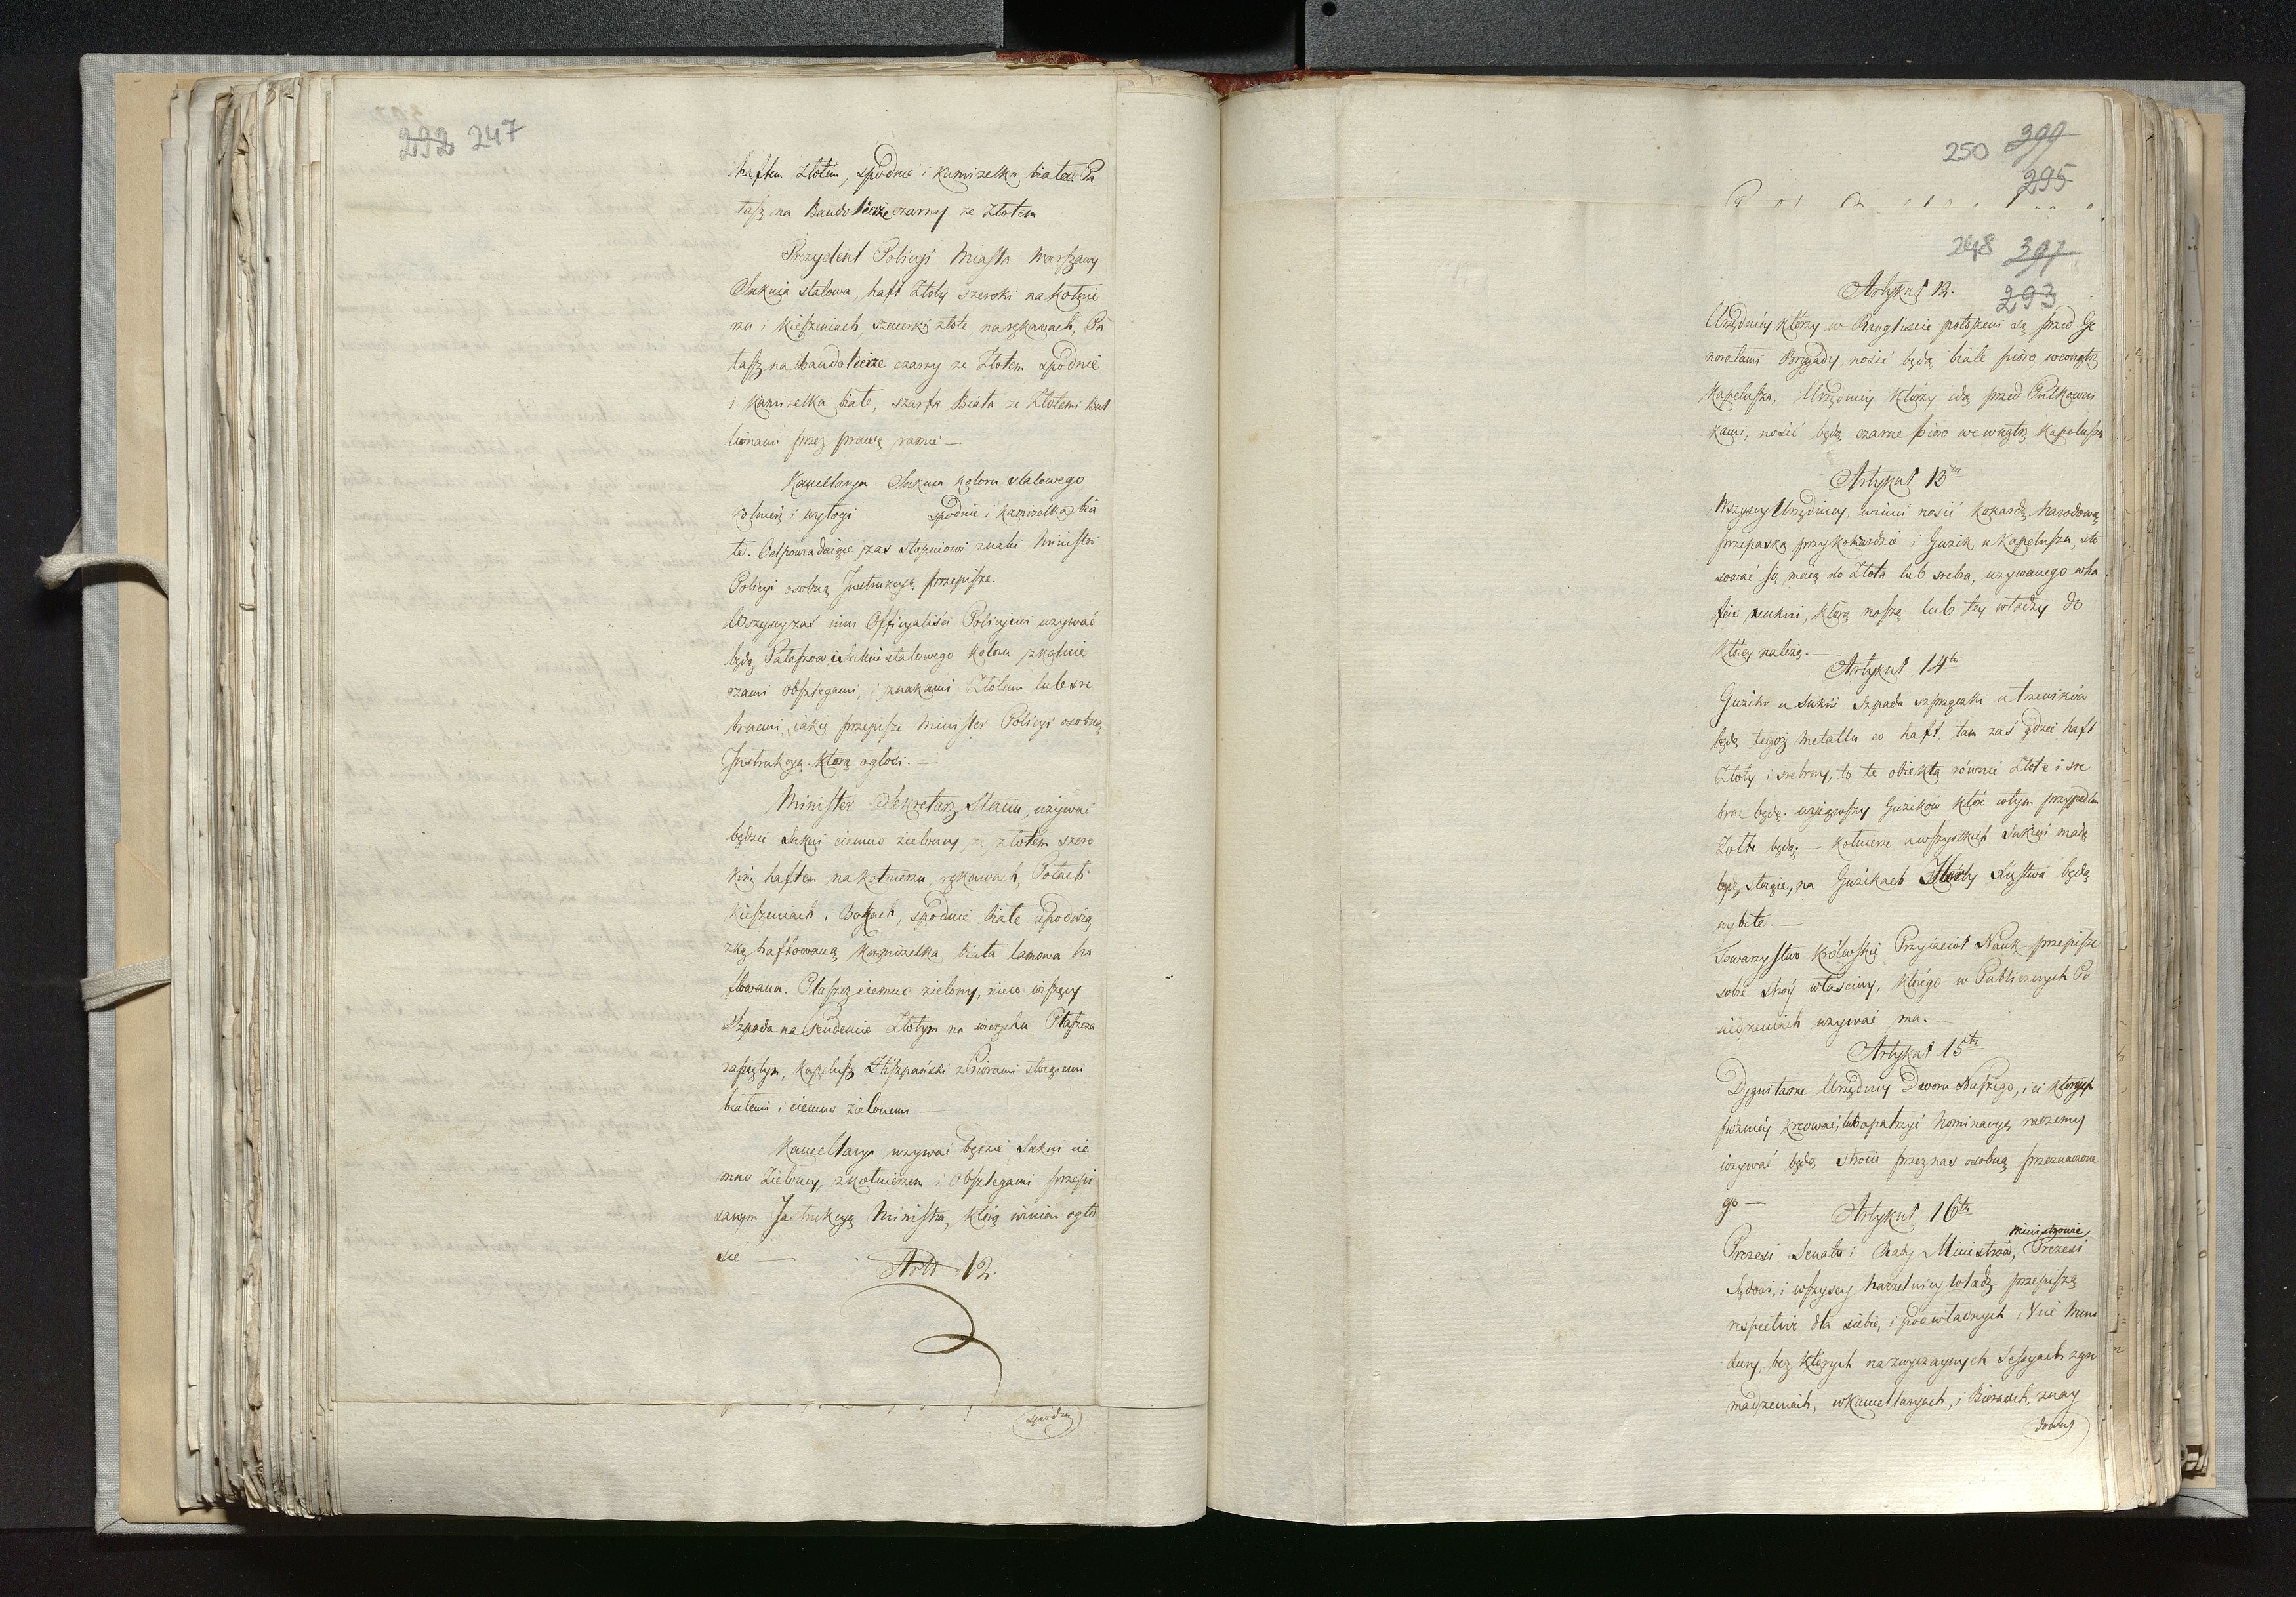 292 247
haftem złotem, spodnie i kamizelka białe. Pa
łasz na Bandolierze czarny ze złotem
Prezydent Policyi Miasta Warszawy
Suknia stalowa, haft złoty szeroki na kołnie
rzu i kieszeniach, sznurki złote, na rękawach, Pa
łasz na Bandolierze czarny ze złotem spodnie
i kamizelka białe, szarfa Biała ze złotemi Bul
lionami przez prawę ramie —
Kancellarya Suknia koloru stalowego
kołnierz i wyłogi spodnie i kamizelka bia
łe. Odpowiadaiące zas stopniowi znaki Minister
Policyi osobną Instrukcyą przepisze.
Wszyscy zaś inni Officyaliści Policyini używać
będą Pałaszow i Sukni stalowego koloru z kołnie
rzami obszlegami, i znakami złotem lub sre
brnemi, iakie przepisze Minister Policyi osobną
Instrukcyą którą ogłosi. —
Minister Sekretarz Stanu, używać
będzie sukni ciemno zieloney ze złotem szero
kim haftem na kołnierzu, rękawach, Połach
kieszeniach, Bokach, spodnie białe z podwią
zką haftowaną, kamizelka biała lamowa ha
ftowana. Płaszcz ciemno zielony, wiszący
Szpada na Pendencie złotym na wierzchu Płaszcza
zapiętym, kapelusz Hiszpański z Piorami stoiącemi
białemi i ciemno zielonemi —
Kancellarya używać będzie Sukni cie
mno zieloney, z kołnierzem i obszlegami przepi
sanym Instrukcyą Ministra, którą winien ogło
sić —
Art 12.
spodn
250 399
295
248 397
293
Artykuł 12.
Urzędnicy którzy w Rangliscie położeni są przed Ge
nerałami Brygady, nosić będą białe pióro wewnątrz
Kapelusza, Urzędnicy którzy idą przed Pułkowni
kami, nosić będą czarne pióro we wnątrz kapelusza
Artykuł 13ty
Wszyscy Urzędnicy, winni nosić kokardę Narodową
przepaska przykokardzie i Guzik u kapelusza, sto
sować się maią do złota lub srebra, używanego w ha
fcie sukni, którą noszą lub tey władzy do
którey należą. —
Artykuł 14ty
Guziki u Sukni szpada szprzączki u trzewików
będą tegoż metallu co haft, tam zaś gdzie haft
złoty i srebrny, to te obiekta równie złote i sre
brne będą. wyiąwszy Guzików które w tym przypadku
żołte będą. — Kołnierze u wszystkich Sukien maią
być stoiące, na Guzikach Herby Xięstwa będą
wybite. —
Towarzystwo Królewskie Przyiaciół Nauk przepisze
sobie stróy właściwy, którego w Publicznych Po
siedzeniach używać ma. —
Artykuł 15ty
Dygnitarze Urzędnicy Dworu Naszego, i ci których
późniey kreować, lub opatrzyć Nominacyą raczemy
używać będą stroiu przez nas osobną przeznaczone
go —
Artykuł 16ty
Ministrowie
Prezesi Senatu i Rady Ministrów, Prezesi
Sądowi, i wszyscy naczelnicy władz przepiszą
respective dla siebie, i podwładnych, Mun
dury, bez których na zwyczaynych Sessyach zgro
madzeniach, w kancellaryach, i Biórach, znay
dować